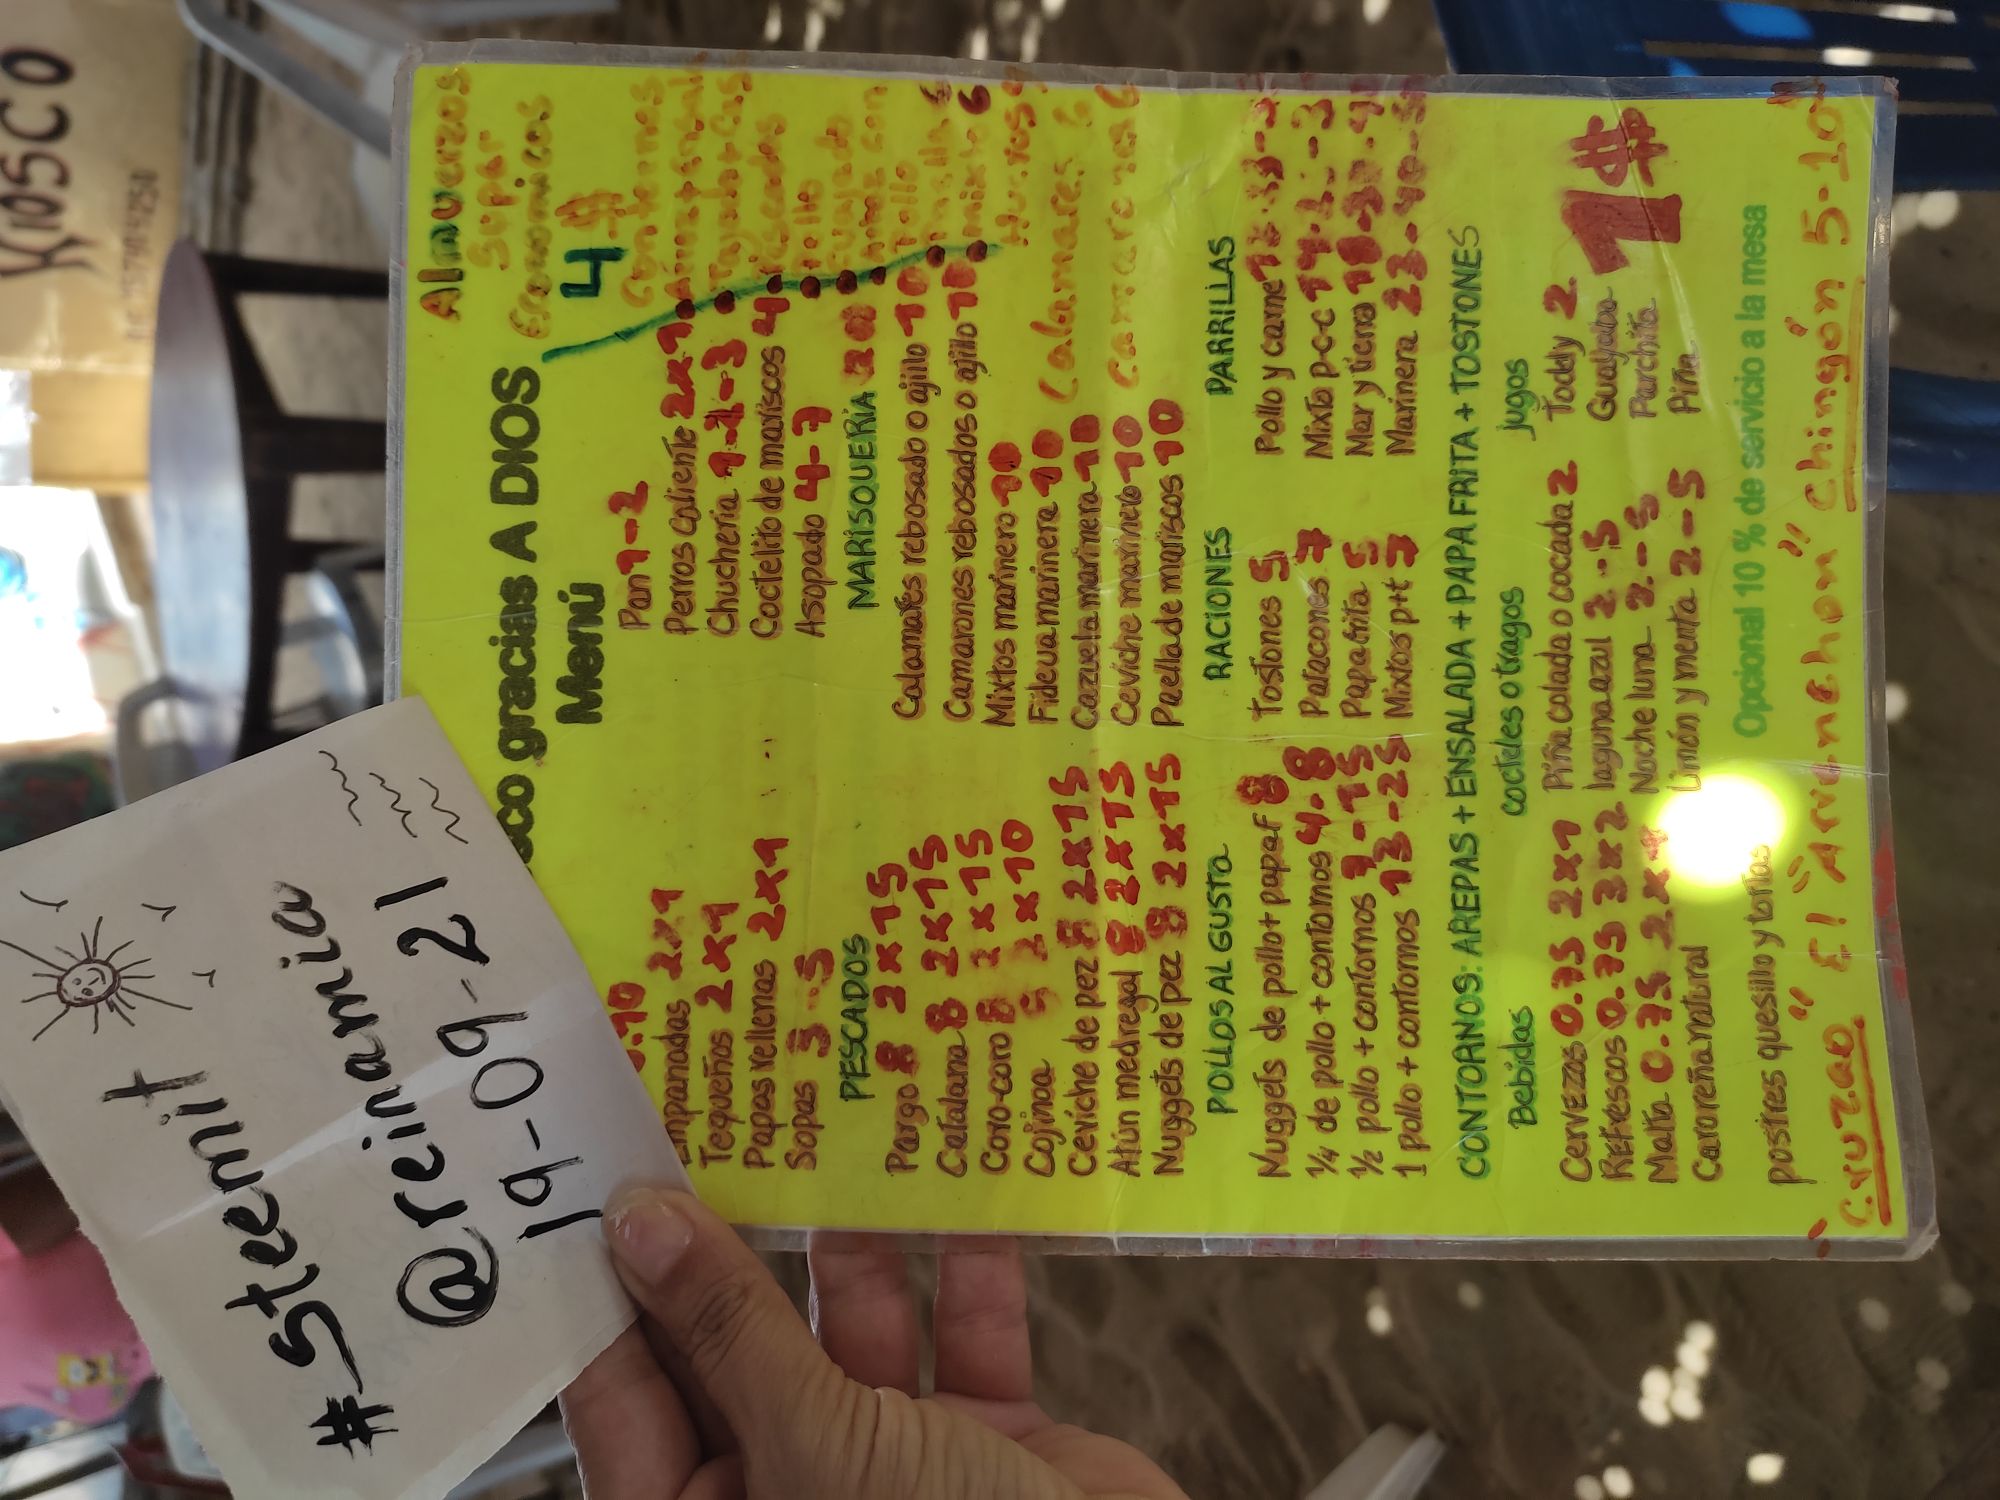 KIOSCO
#Steemit
@reinamia
19-09-21
sco gracias A DIOS
Menú
Almuerzos
Super
Economicos
4$
Empanadas 2x1
Tequeños 2x1
Papas rellenas 2x1
Sopas 3-5
Pan 1-2
Perros caliente 2x1
Chucheria
Coctelito de mariscos 4
Asopado 4-7
PESCADOS
Pargo 8 2x15
Catalana 8 2x15
Coro-coro 8 2x15
Cojinoa 5 2x10
Ceviche de pez 8 2x15
Atún medregal 8 2x15
Nuggets de pez 8 2x15
MARISQUERIA
Calamares rebosado o ajillo 10
Camarones rebosados o ajillo 10
Mixtos marinero 10
Fideua marinera 10
Cazuela marinera 10
Ceviche marinero 10
Paella de mariscos 10
mixto 6
Calamares 6
camarones 6
POLLOS AL GUSTO
Nuggets de pollo + papa f 8
1/4 de pollo + contornos 4-8
1/2 pollo + contornos 7-15
1 pollo + contornos 13-25
RACIONES
Tostones 5
Patacones 7
Papa frita 5
Mixtos p+t 7
PARRILLAS
Pollo y carne
Mixto p-c-c
Mar y tierra
Marinera
CONTORNOS: AREPAS + ENSALADA + PAPA FRITA + TOSTONES
Bebidas
Cervezas 0.75 2x1
Refrescos 0.75 3x2
Malta 0.75
Caroreña natural
cocteles o tragos
Piña colada o cocada 2
laguna azul 2-5
Noche luna 2-5
Limón y menta 2-5
jugos
Toddy 2
Guayaba
Parchita
Piña
1$
postres quesillo y tortas
Opcional 10 % de servicio a la mesa
"Cruzao" El "Arrechon" "Chingón 5-10"